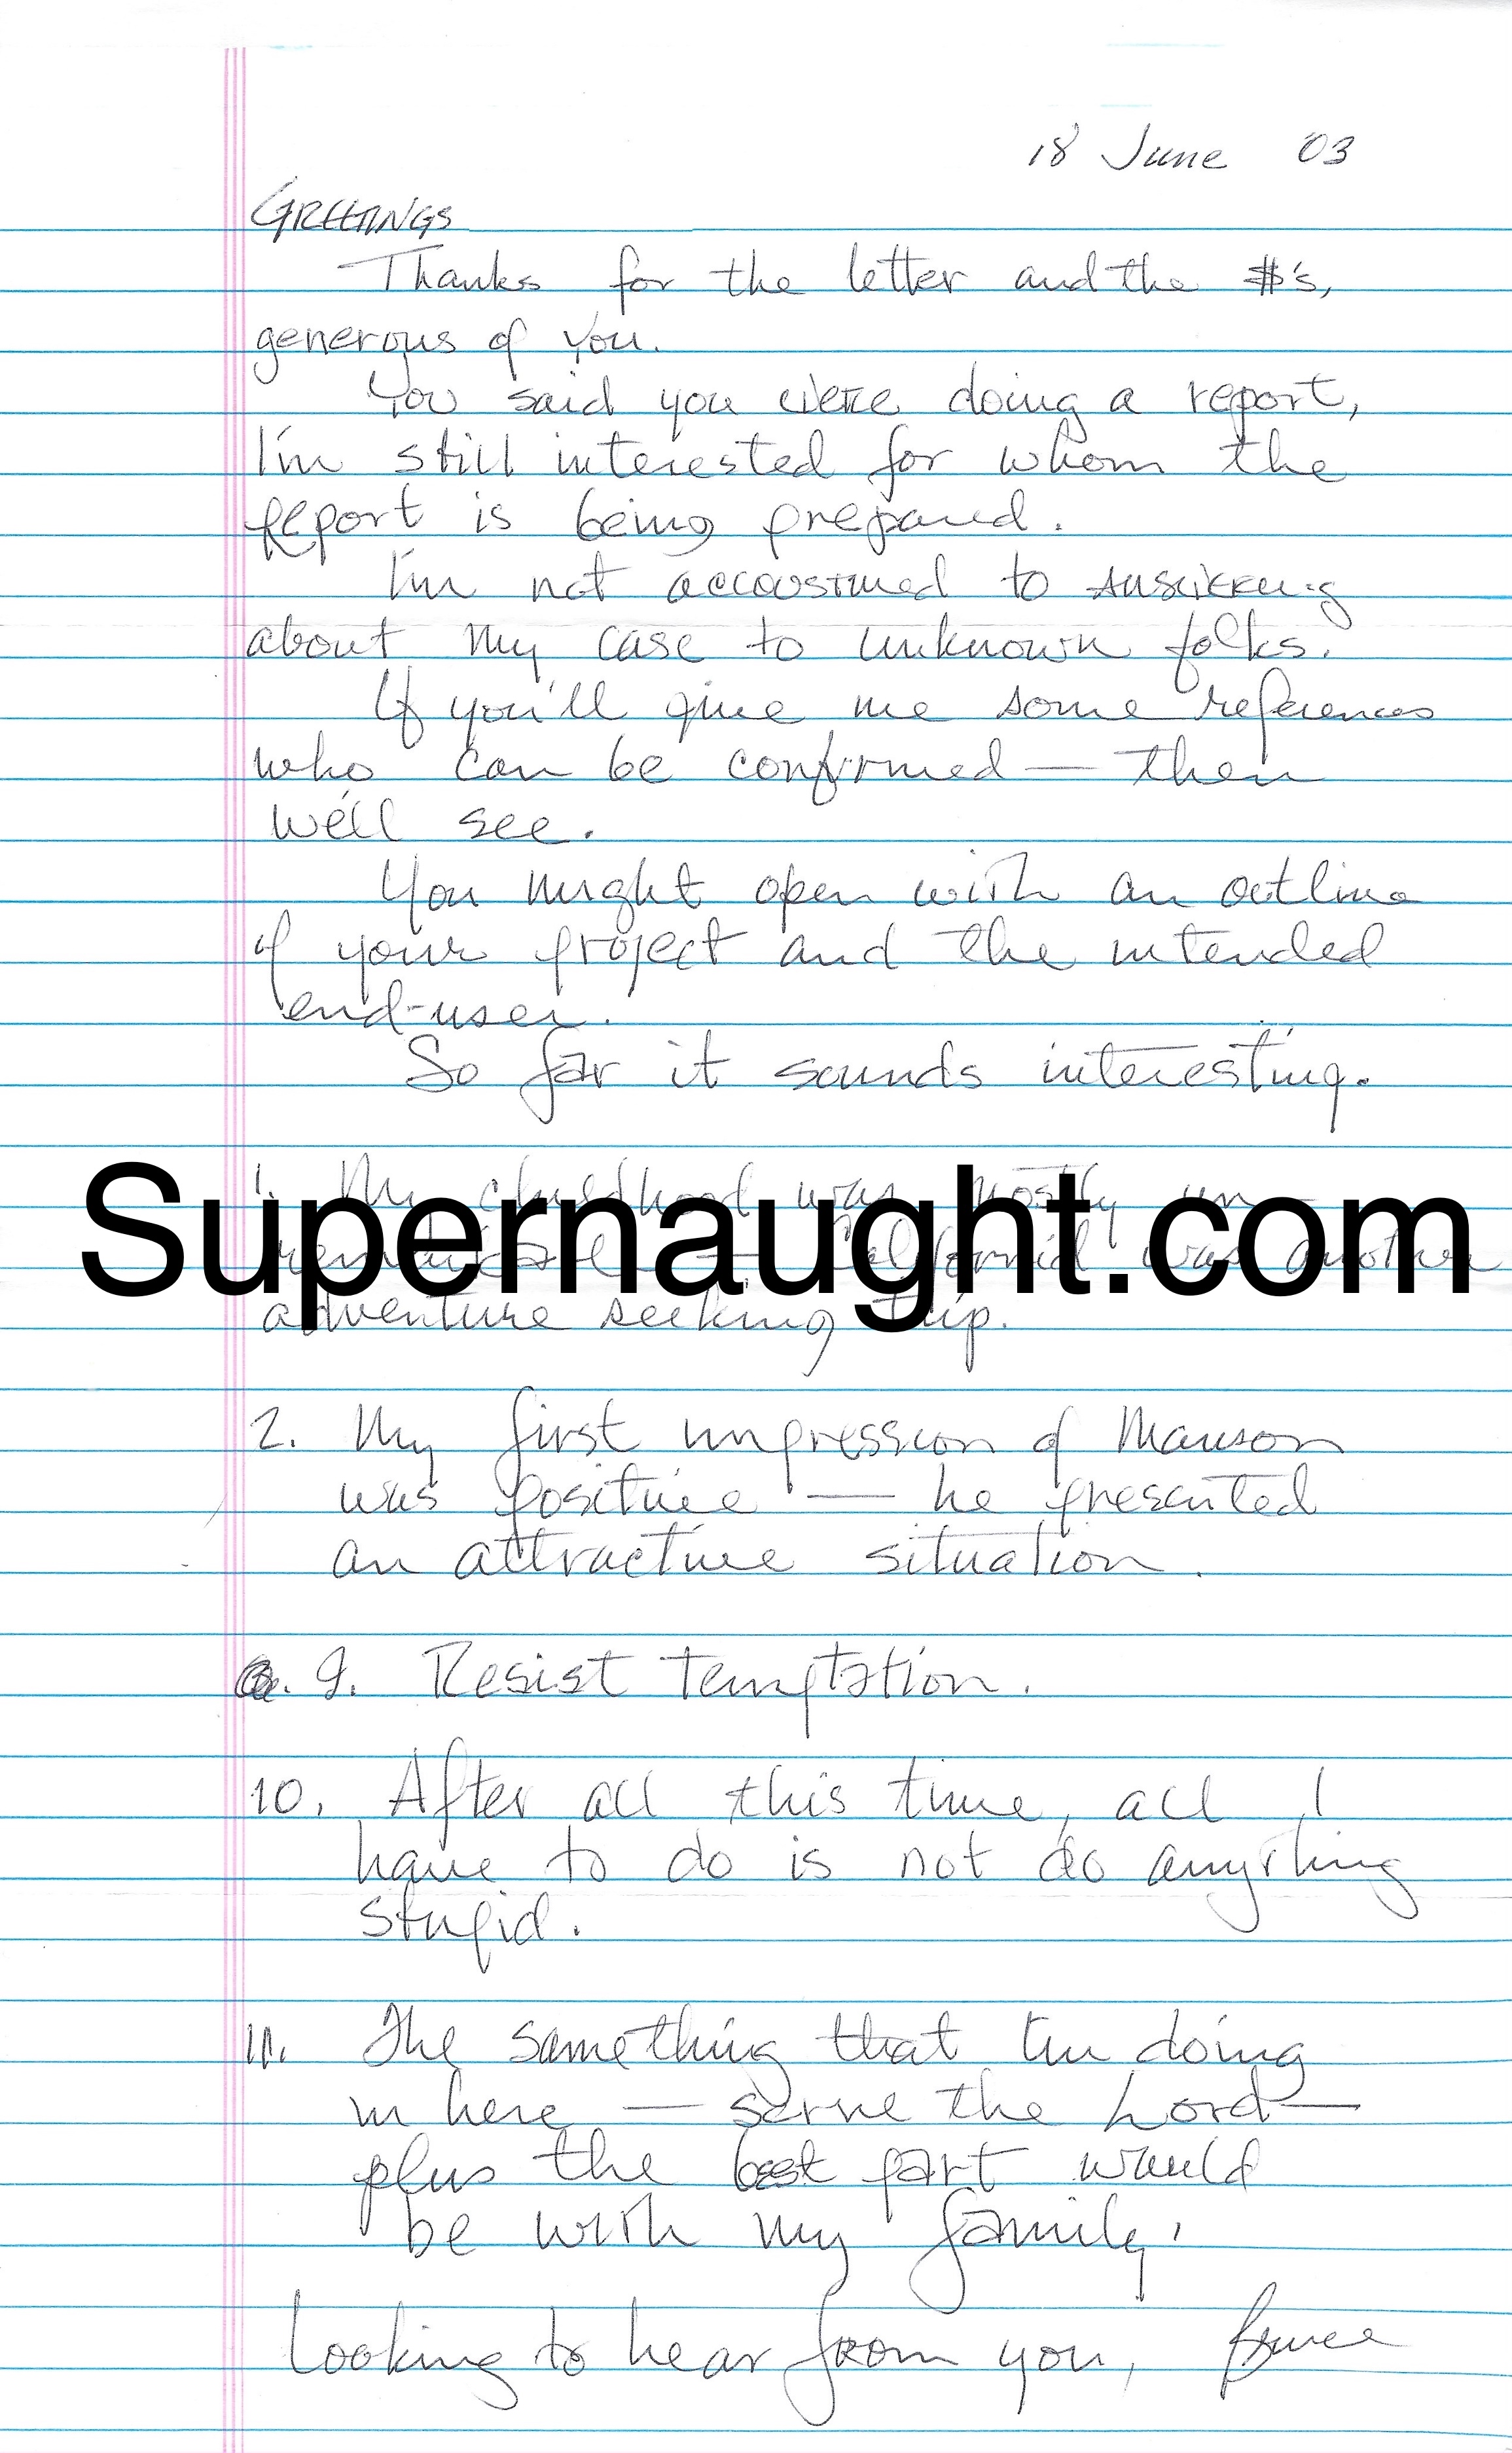 18 June '03
GREETINGS
Thanks for the letter and the $'s,
generous of you.
You said you were doing a report,
I'm still interested for whom the
report is being prepared.
I'm not accoustmed to answering
about my case to unknown folks.
If you'll give me some references
who can be confirmed — then
we'll see.
You might open with an outline
of your project and the intended
end-user.
So far it sounds interesting.
1. My childhood was mostly un-
Supernaught.com
— California was another
adventure seeking trip.
2. My first impression of Manson
was positive — he presented
an attractive situation.
9. Resist temptation.
10. After all this time, all I
have to do is not do anything
stupid.
11. The same thing that I'm doing
in here — serve the Lord —
plus the best part would
be with my family.
Looking to hear from you, Bruce